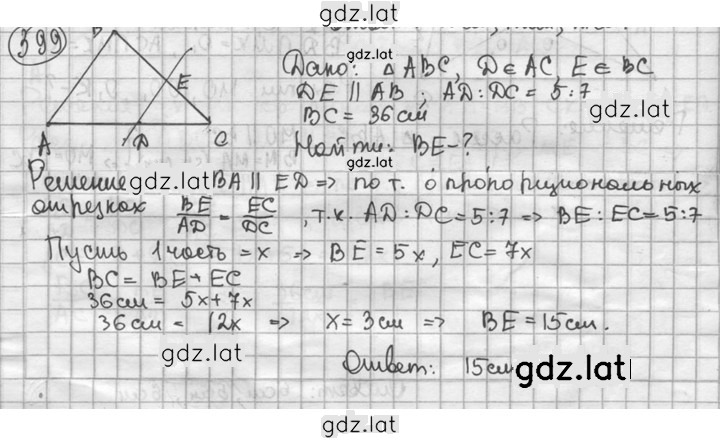 gdz.lat
599
B
E
A D C
Дано: △ ABC, D∈AC, E∈BC
DE ∥ AB ; AD:DC = 5:7
gdz.lat
BC = 36см
Найти: BE-?
gdz.lat
Решение gdz.lat BA ∥ ED => по т. о пропорциональных
отрезках BE/AD = EC/DC, т.к. AD:DC=5:7 => BE:EC=5:7
Пусть 1 часть = x => BE = 5x, EC = 7x
BC = BE + EC
36см = 5x+7x
36см = 12x => x = 3см => BE = 15см.
gdz.lat
Ответ: 15см
gdz.lat
gdz.lat